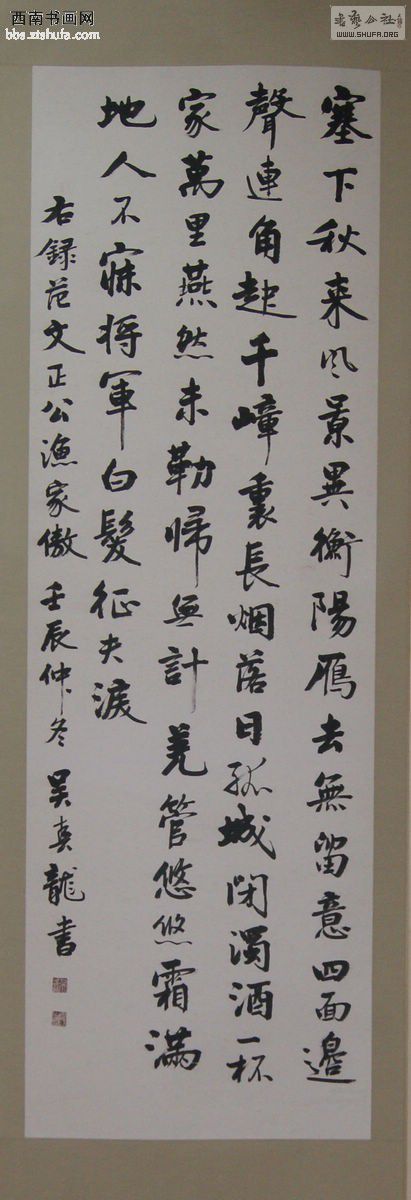 西南书画网
bbs.zishufa.com
书艺公社
WWW.SHUFA.ORG
塞下秋来风景異衡陽鴈去無留意四面邉
聲連角起千嶂裏長烟落日孤城閉濁酒一杯
家萬里燕然未勒帰無計羌管悠悠霜滿
地人不寐将軍白髮征夫淚
右録范文正公漁家傲壬辰仲冬吴真龍書